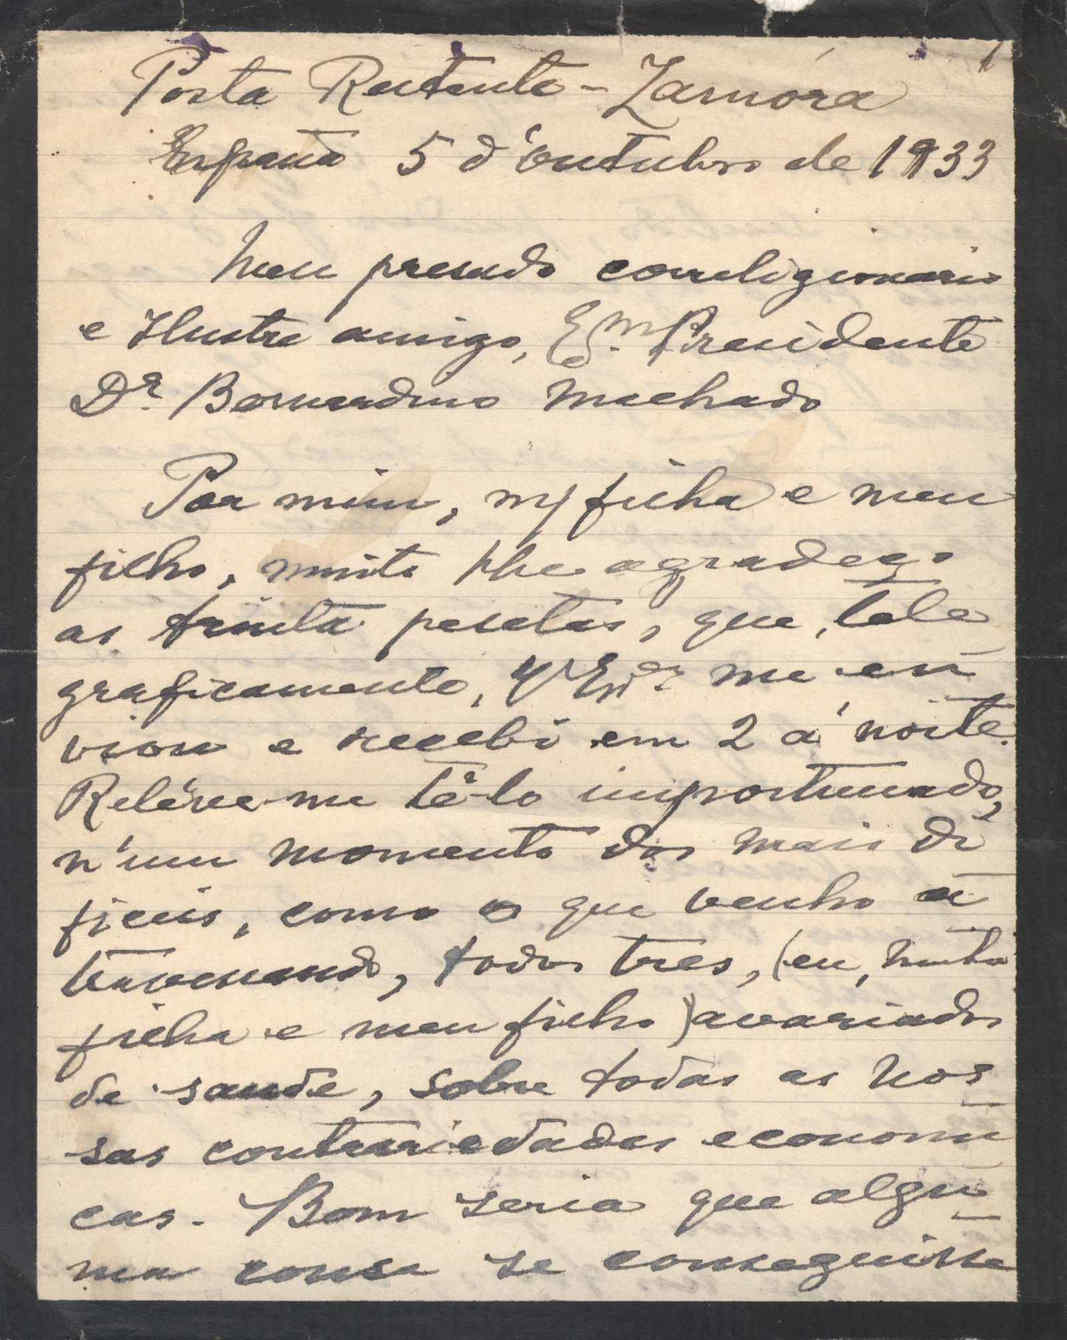 1
Posta Restante - Zamóra
España 5 d'Outubro de 1933
Meu presado correligionario
e Ilustre amigo, Exmº Presidente
Dr. Bernardino Machado
Por mim, m/ filha e meu
filho, muito lhe agradeço
as trinta pesetas, que, tele
graficamente, V. Exª me en
viou e recebi em 2 á noite.
Reléve-me tê-lo importunado,
n'um momento dos mais di
ficeis, como o que venho a
travessando, todos tres, (eu, minha
filha e meu filho) avariados
de saude, sobre todas as nos
sas contrariedades economi
cas. Bom seria que algu
ma cousa se conseguisse